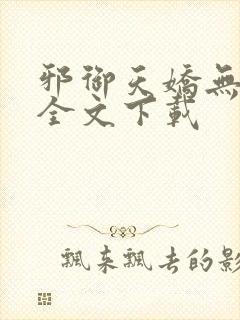 邪御天嬌無
全文下載
飄來飄去的影